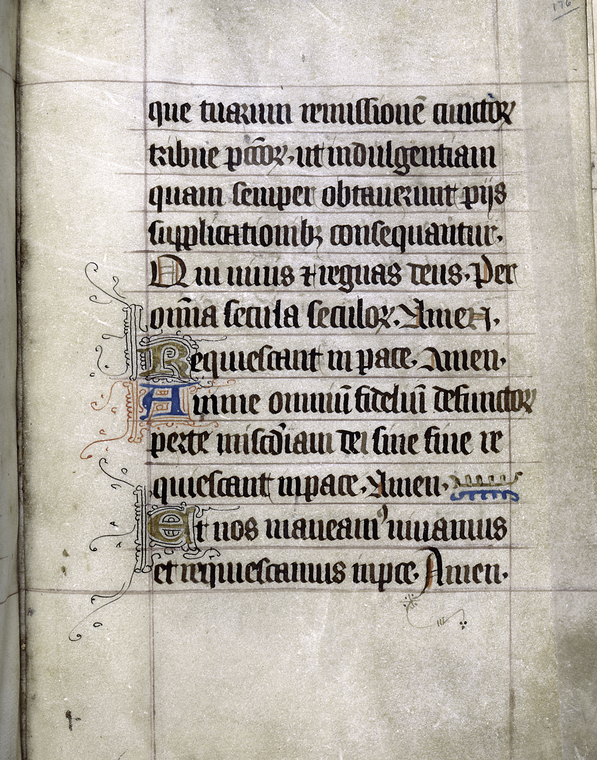 176
que tuarum remissionē cunctoꝝ
tribue pc̄cōꝝ. ut indulgentiam
quam semper obtauerunt pijs
supplicationibꝫ consequantur.
Qui uiuis ⁊ regnas deus. Per
om̄ia secula seculoꝝ. Amen.
Requiescant in pace. Amen.
Anime omniū fidelū defunctoꝝ
per te misc̄diam dei sine fine re
quiescant in pace. Amen.
Et nos maneamꝰ uiuamus
et requiescamus in pce. Amen.